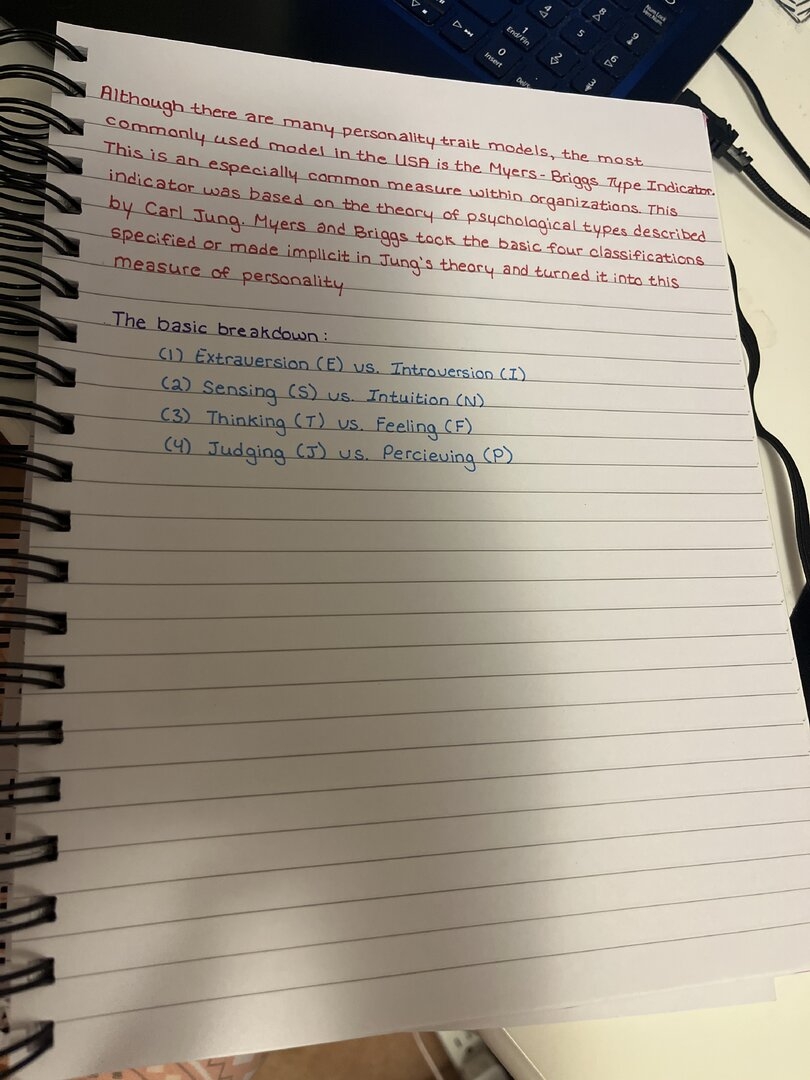 Num Lock
4
8
9
1
End/Fin
5
6
0
Insert
2
3
Although there are many personality trait models, the most
commonly used model in the USA is the Myers-Briggs Type Indicator.
This is an especially common measure within organizations. This
indicator was based on the theory of psychological types described
by Carl Jung. Myers and Briggs took the basic four classifications
specified or made implicit in Jung's theory and turned it into this
measure of personality
The basic breakdown:
(1) Extraversion (E) vs. Introversion (I)
(2) Sensing (S) vs. Intuition (N)
(3) Thinking (T) vs. Feeling (F)
(4) Judging (J) vs. Percieving (P)